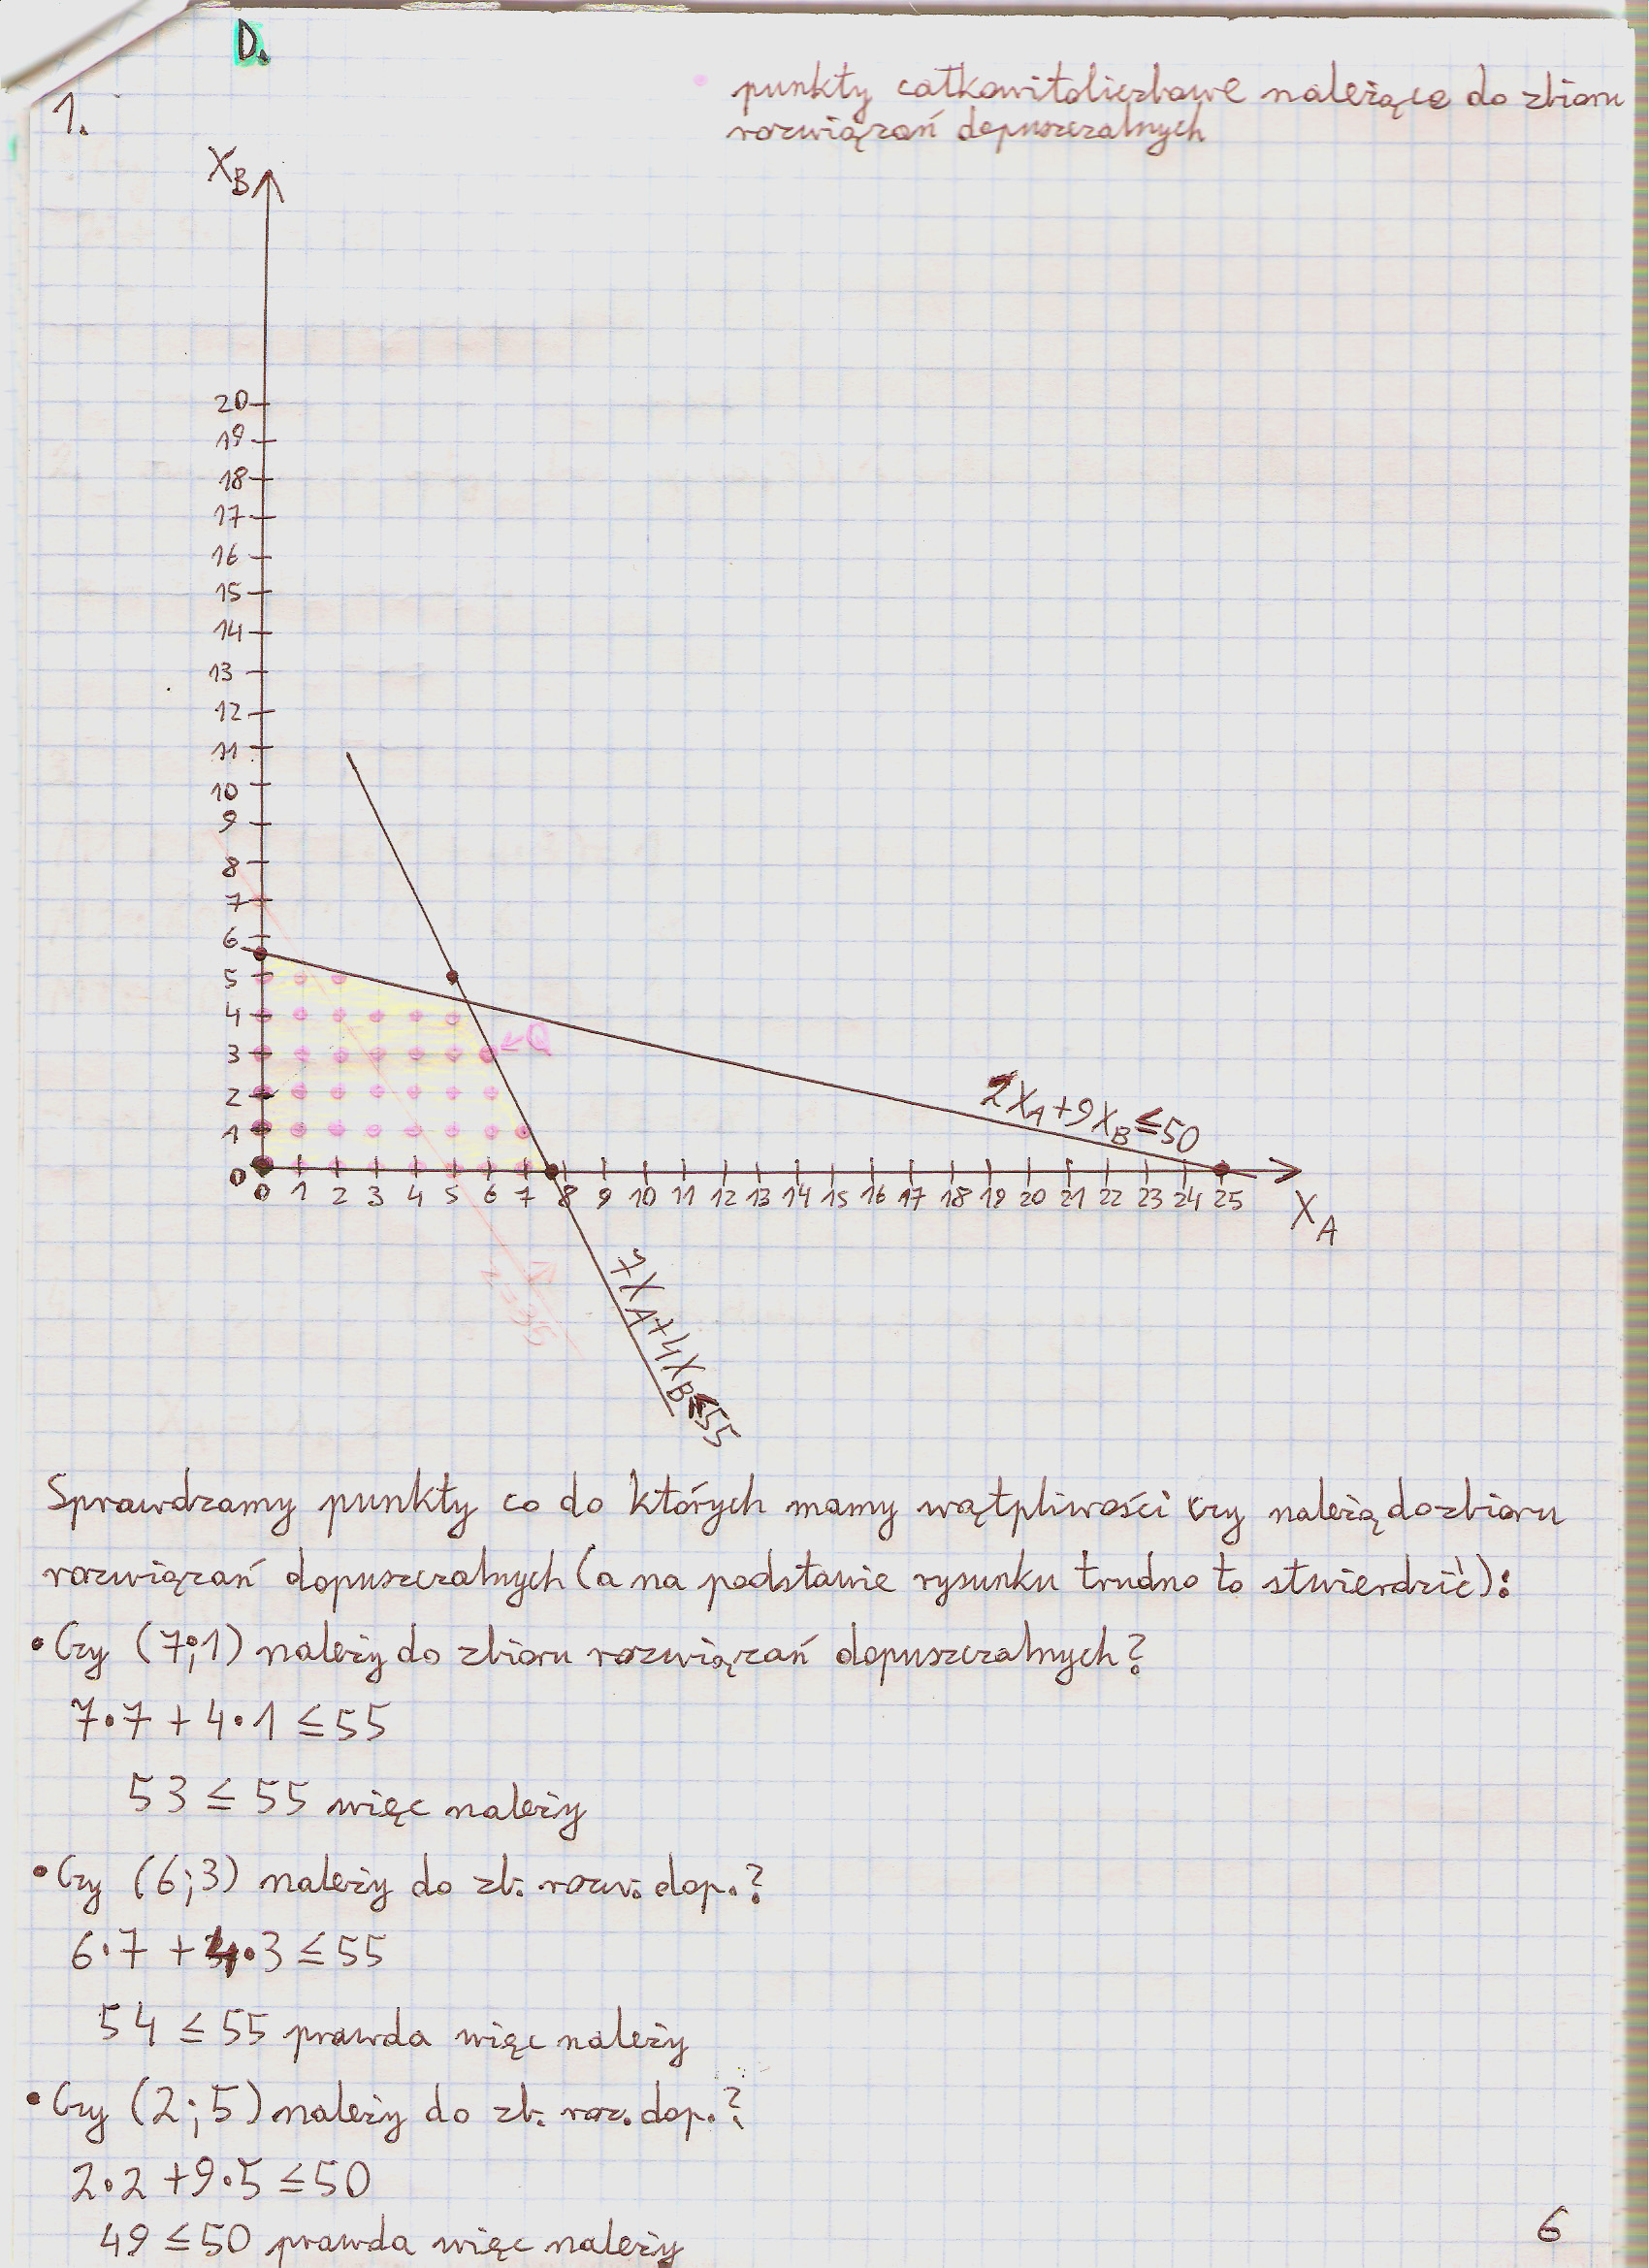 D.
1.
punkty całkowitoliczbowe należące do zbioru
rozwiązań dopuszczalnych
X_B
20
19
18
17
16
15
14
13
12
11
10
9
8
7
6
5
4
3
2
1
0
←Q
2X_A+9X_B≤50
0 1 2 3 4 5 6 7 8 9 10 11 12 13 14 15 16 17 18 19 20 21 22 23 24 25
X_A
7X_A+4X_B≤55
z=35
Sprawdzamy punkty co do których mamy wątpliwości czy należą do zbioru
rozwiązań dopuszczalnych (a na podstawie rysunku trudno to stwierdzić):
• Czy (7;1) należy do zbioru rozwiązań dopuszczalnych?
7·7 + 4·1 ≤ 55
53 ≤ 55 więc należy
• Czy (6;3) należy do zb. rozw. dop.?
6·7 + 4·3 ≤ 55
54 ≤ 55 prawda więc należy
• Czy (2;5) należy do zb. roz. dop.?
2·2 + 9·5 ≤ 50
49 ≤ 50 prawda więc należy
6